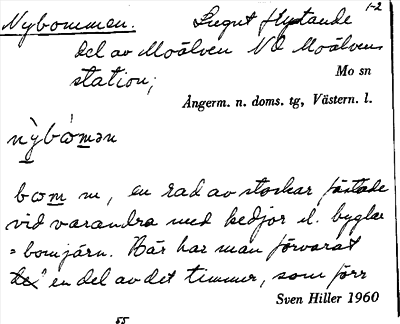 Nybommen. Lugnt flytande 1-2
del av Moälven NO Moälvens
station;
Mo sn
Ångerm. n. doms. tg, Västern. l.
nỳbòmən
bom m, en rad av stockar fästade
vid varandra med kedjor el. byglar
= bomjärn. Här har man förvarat
en del av det timmer, som förr
Sven Hiller 1960
55